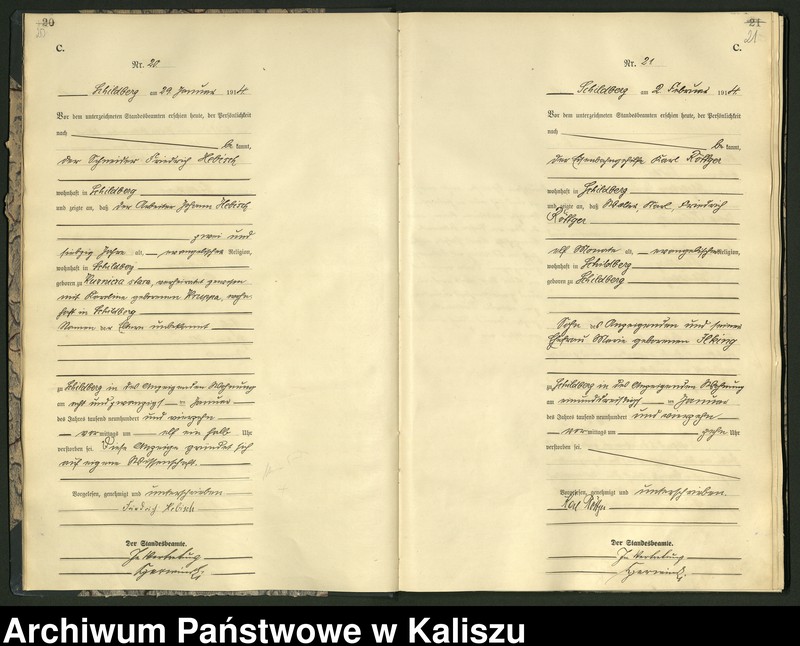 20
20
C.
Nr. 20
Schildberg am 29. Januar 1914
Vor dem unterzeichneten Standesbeamten erschien heute, der Persönlichkeit
nach be kannt,
der Schneider Friedrich Hebisch
wohnhaft in Schildberg
und zeigte an, daß der Arbeiter Johann Hebisch
zwei und
siebzig Jahre alt, evangelischer Religion,
wohnhaft in Schildberg
geboren zu Kuźnica stara, verheiratet gewesen
mit Karoline geborenen Kruppa, wohn-
haft in Schildberg
Namen der Eltern unbekannt
zu Schildberg in des Anzeigenden Wohnung
am acht und zwanzigsten Januar
des Jahres tausend neunhundert und vierzehn
vor mittags um elf ein halb Uhr
verstorben sei. Diese Anzeige gründet sich
auf eigene Wissenschaft.
Vorgelesen, genehmigt und unterschrieben
Friedrich Hebisch
Der Standesbeamte.
In Vertretung
21
21
C.
Nr. 21
Schildberg am 2. Februar 1914
Vor dem unterzeichneten Standesbeamten erschien heute, der Persönlichkeit
nach be kannt,
der Eisenbahngehilfe Karl Röttger
wohnhaft in Schildberg
und zeigte an, daß Walter, Karl, Friedrich
Röttger
elf Monate alt, evangelischer Religion,
wohnhaft in Schildberg
geboren zu Schildberg
Sohn des Anzeigenden und seiner
Ehefrau Marie geborenen Ilking
zu Schildberg in des Anzeigenden Wohnung
am einunddreißigsten Januar
des Jahres tausend neunhundert und vierzehn
vor mittags um zehn Uhr
verstorben sei.
Vorgelesen, genehmigt und unterschrieben
Karl Röttger
Der Standesbeamte.
In Vertretung
Archiwum Państwowe w Kaliszu